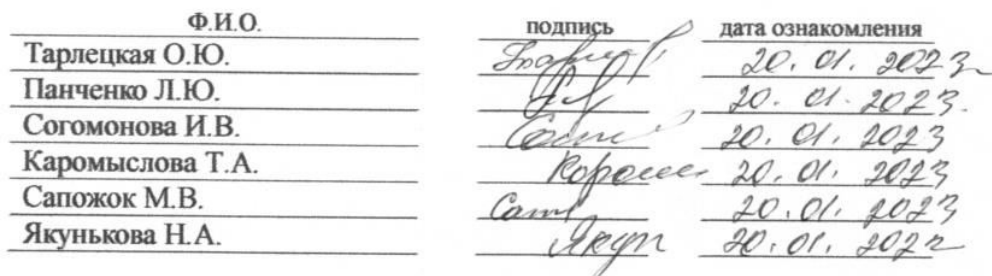 Ф.И.О. подпись дата ознакомления
Тарлецкая О.Ю. 20.01.2023
Панченко Л.Ю. 20.01.2023.
Согомонова И.В. 20.01.2023
Каромыслова Т.А. 20.01.2023
Сапожок М.В. 20.01.2023
Якунькова Н.А. Якун 20.01.202